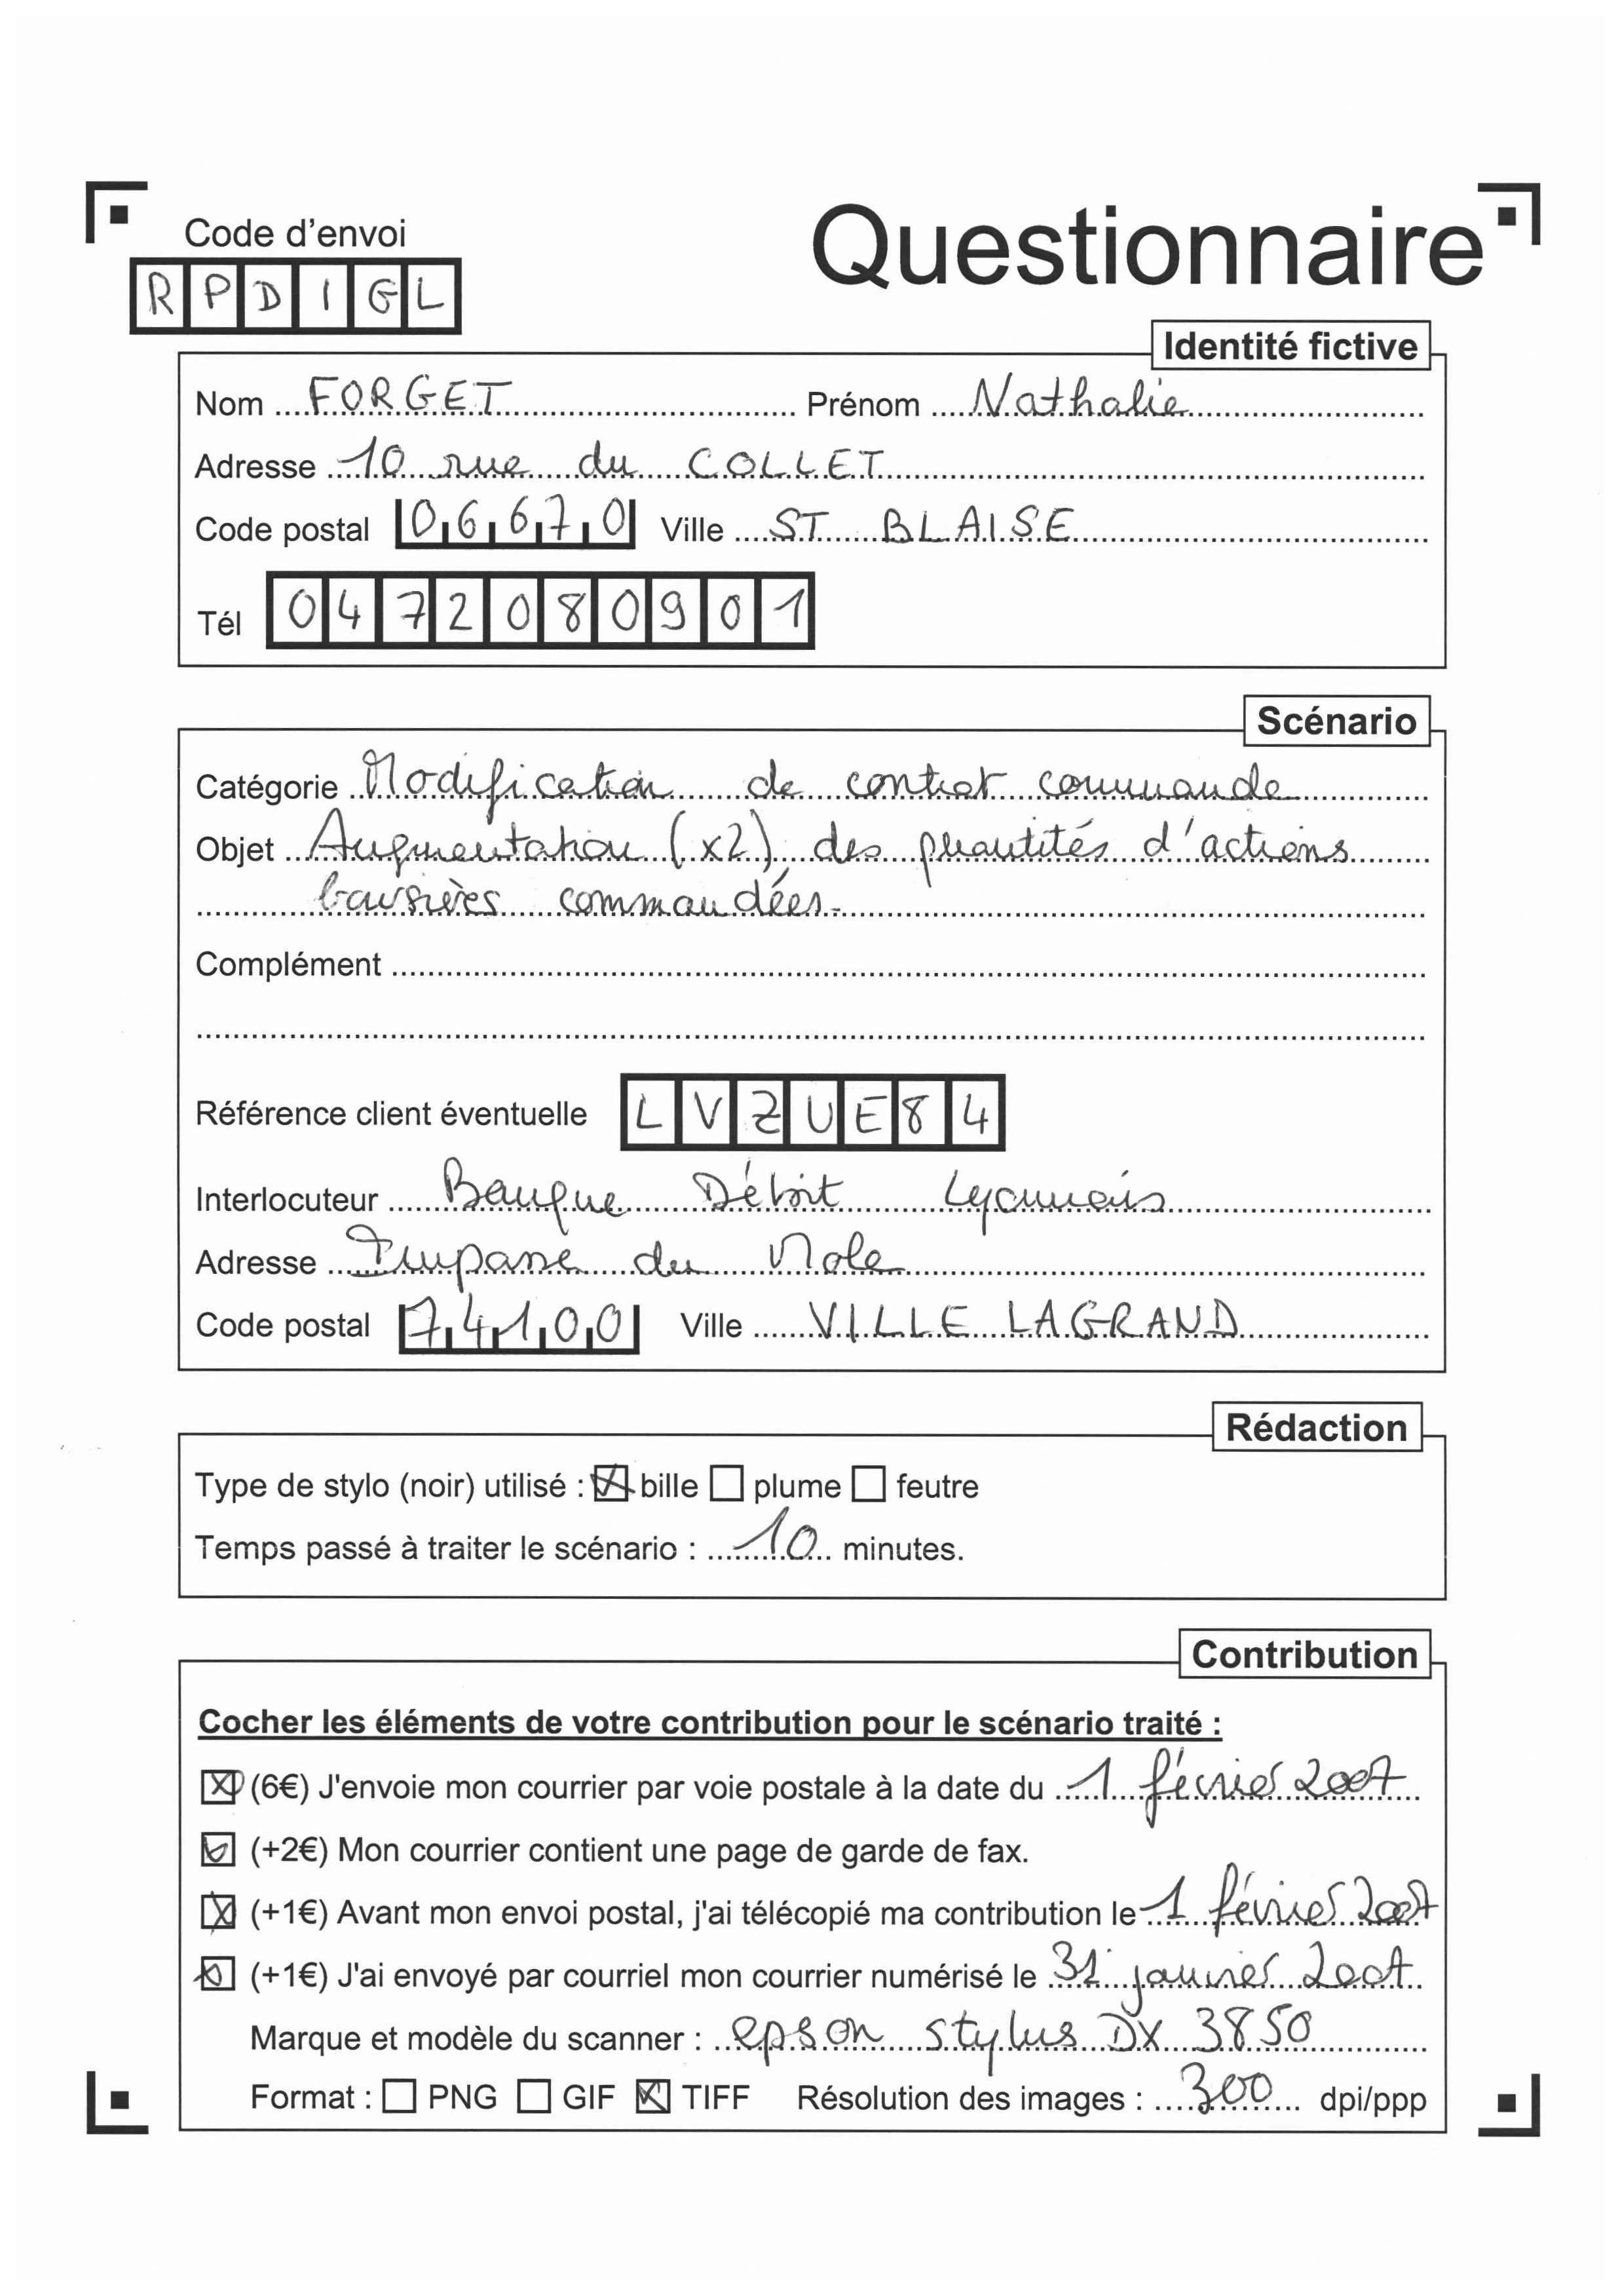 Code d'envoi
Questionnaire
RPDIGL
Identité fictive
Nom FORGET Prénom Nathalie
Adresse 10 rue du COLLET
Code postal 06670 Ville ST BLAISE
Tél 0472080901
Scénario
Catégorie Modification de contrat commande
Objet Augmentation (x2) des quantités d'actions
boursières commandées.
Complément
Référence client éventuelle LVZUE84
Interlocuteur Banque Débit Lyonnais
Adresse Impasse du Mole
Code postal 74100 Ville VILLE LAGRAND
Rédaction
Type de stylo (noir) utilisé : bille plume feutre
Temps passé à traiter le scénario : 10 minutes.
Contribution
Cocher les éléments de votre contribution pour le scénario traité :
(6€) J'envoie mon courrier par voie postale à la date du 1 février 2007
(+2€) Mon courrier contient une page de garde de fax.
(+1€) Avant mon envoi postal, j'ai télécopié ma contribution le 1 février 2007
(+1€) J'ai envoyé par courriel mon courrier numérisé le 31 janvier 2007
Marque et modèle du scanner : epson stylus DX 3850
Format : PNG GIF TIFF Résolution des images : 300 dpi/ppp